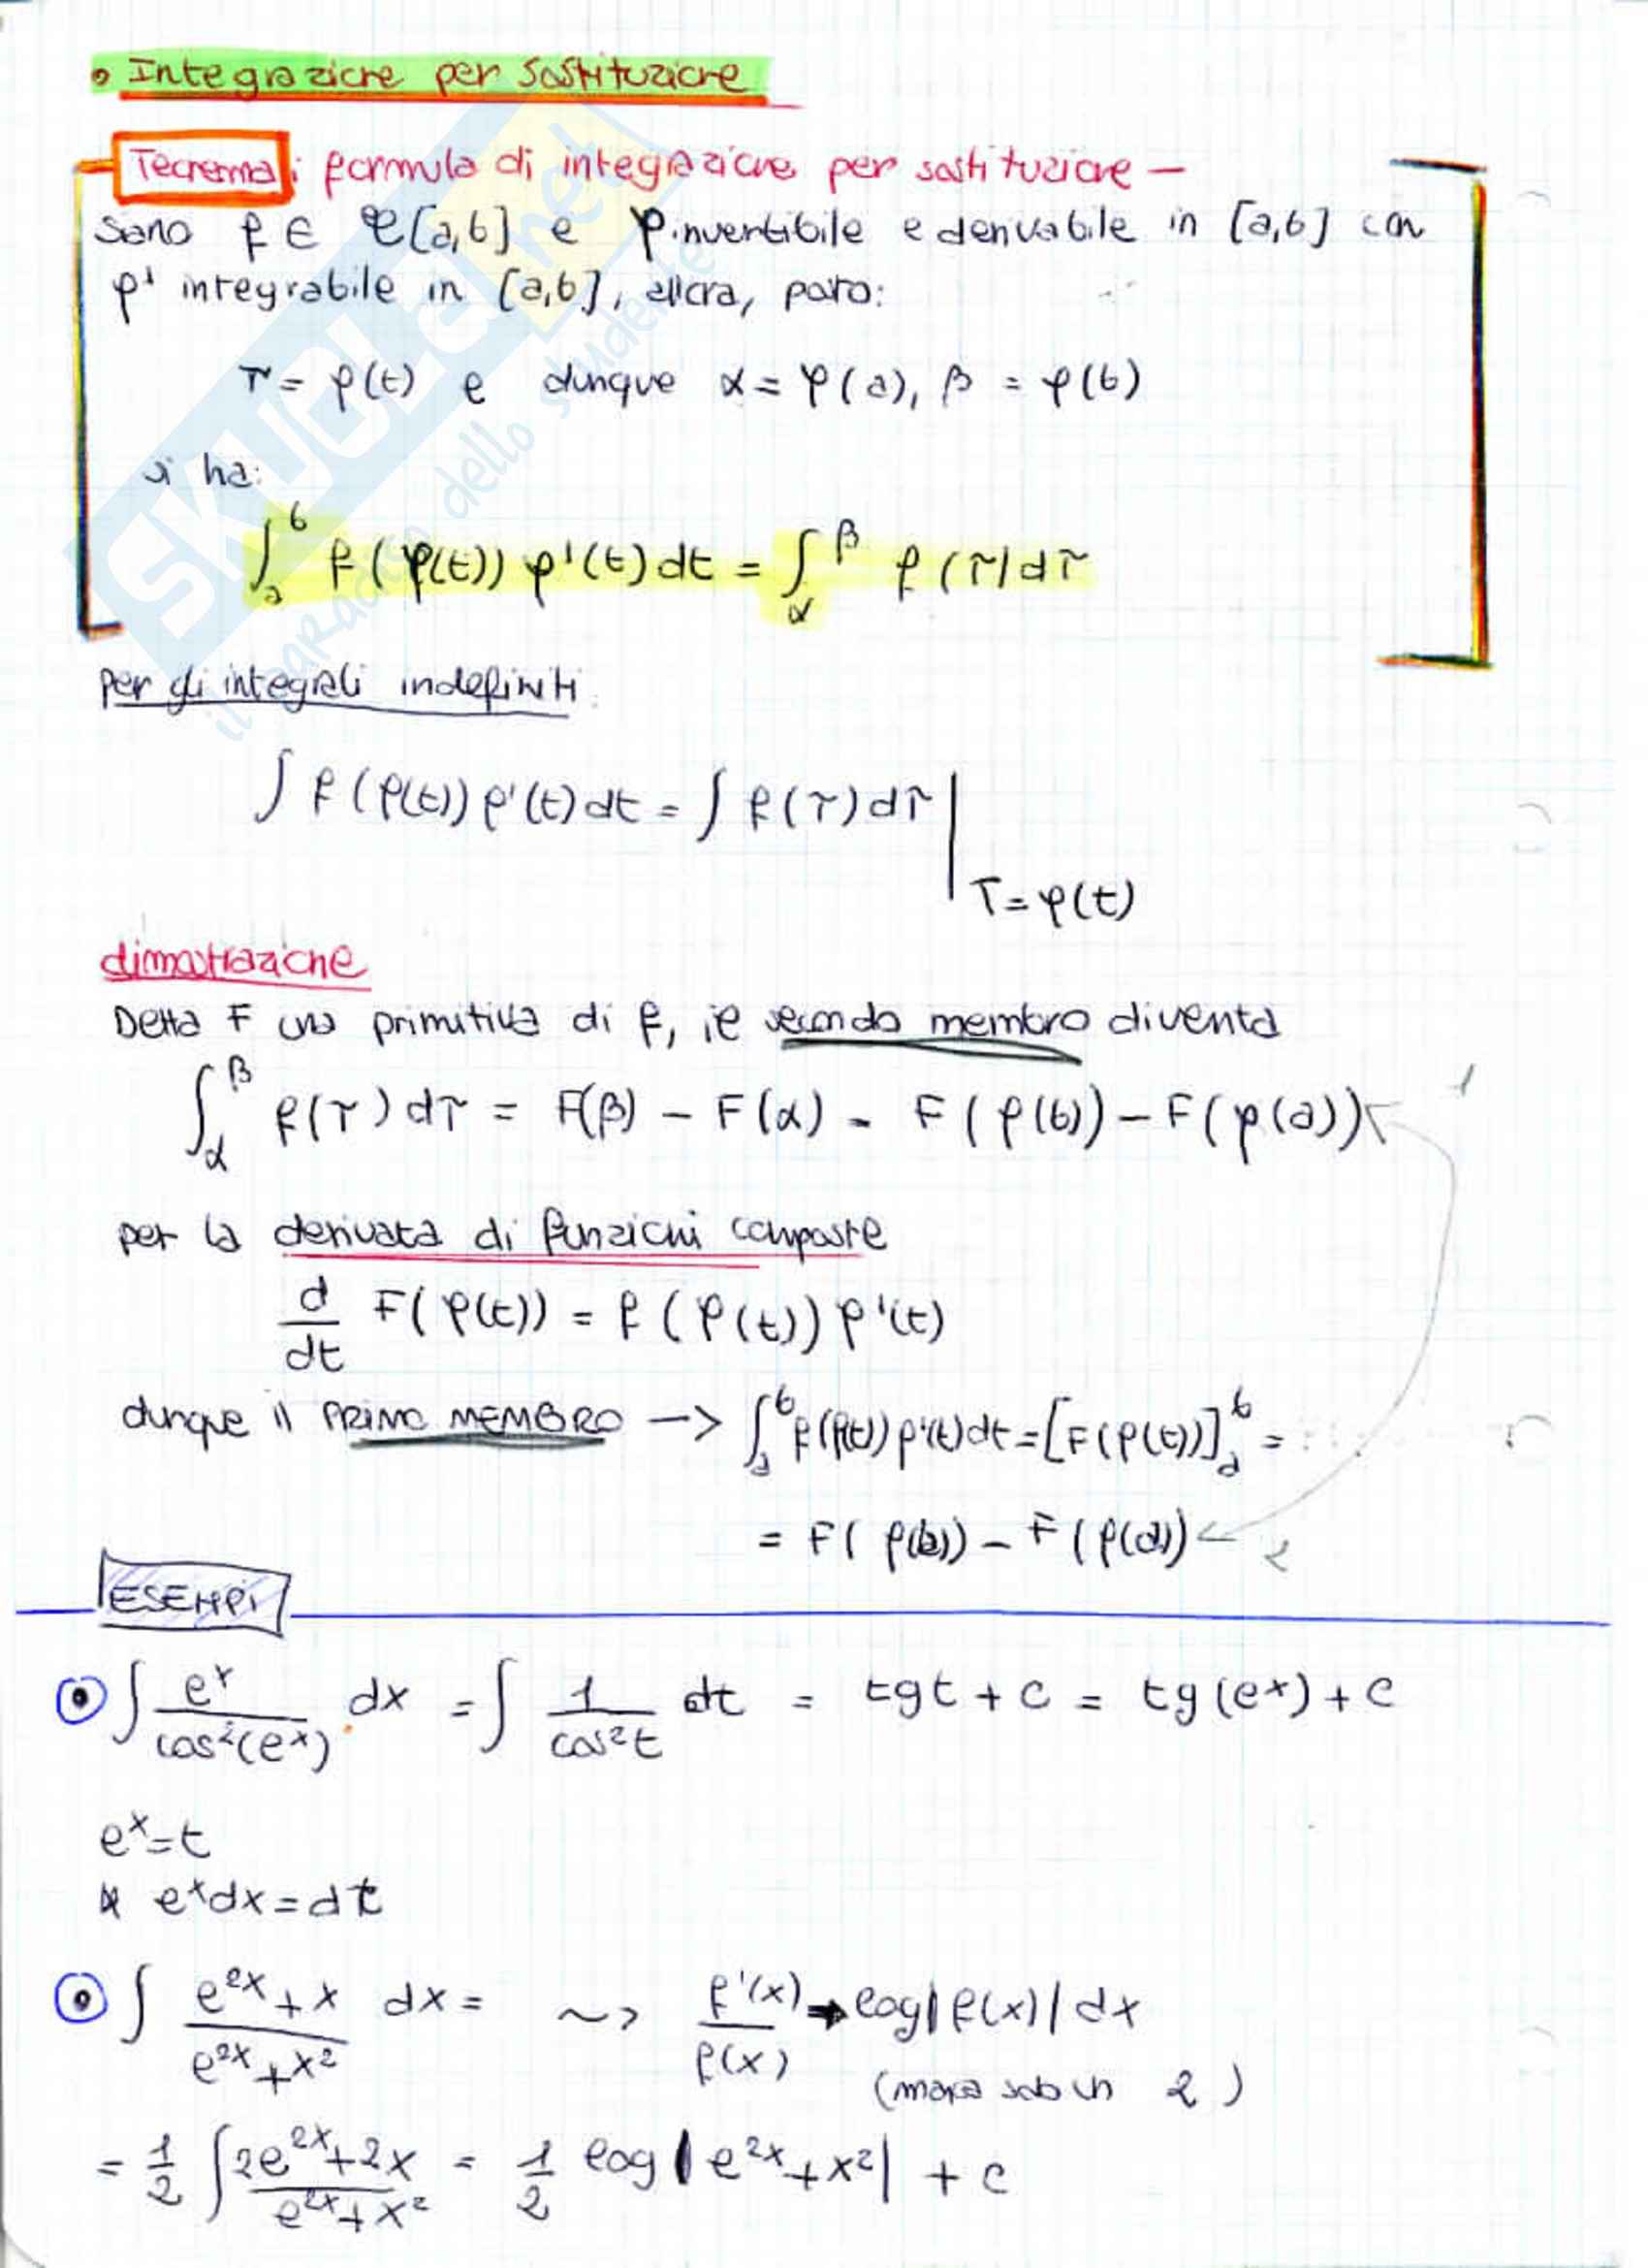 • Integrazione per sostituzione
Teorema: formula di integrazione per sostituzione –
Siano f ∈ C[a,b] e φ invertibile e derivabile in [a,b] con
φ' integrabile in [a,b], allora, posto:
τ = φ(t) e dunque α = φ(a), β = φ(b)
si ha:
∫_a^b f(φ(t)) φ'(t) dt = ∫_α^β f(τ) dτ
per gli integrali indefiniti:
∫ f(φ(t)) φ'(t) dt = ∫ f(τ) dτ |
τ = φ(t)
dimostrazione
Detta F una primitiva di f, il secondo membro diventa
∫_α^β f(τ) dτ = F(β) – F(α) = F(φ(b)) – F(φ(a)) 1
per la derivata di funzioni composte
d/dt F(φ(t)) = f(φ(t)) φ'(t)
dunque il PRIMO MEMBRO –> ∫_a^b f(φ(t)) φ'(t) dt = [F(φ(t))]_a^b =
= F(φ(b)) – F(φ(a)) 2
ESEMPI
⊙ ∫ e^x/cos²(e^x) dx = ∫ 1/cos²t dt = tgt + c = tg(e^x) + c
e^x = t
e^x dx = dt
⊙ ∫ (e^2x + x)/(e^2x + x²) dx = ~> f'(x)/f(x) → log|f(x)| dx
(manca solo un 2)
= 1/2 ∫ (2e^2x + 2x)/(e^2x + x²) = 1/2 log|e^2x + x²| + c
SKUOLA.net
il paradiso dello studente